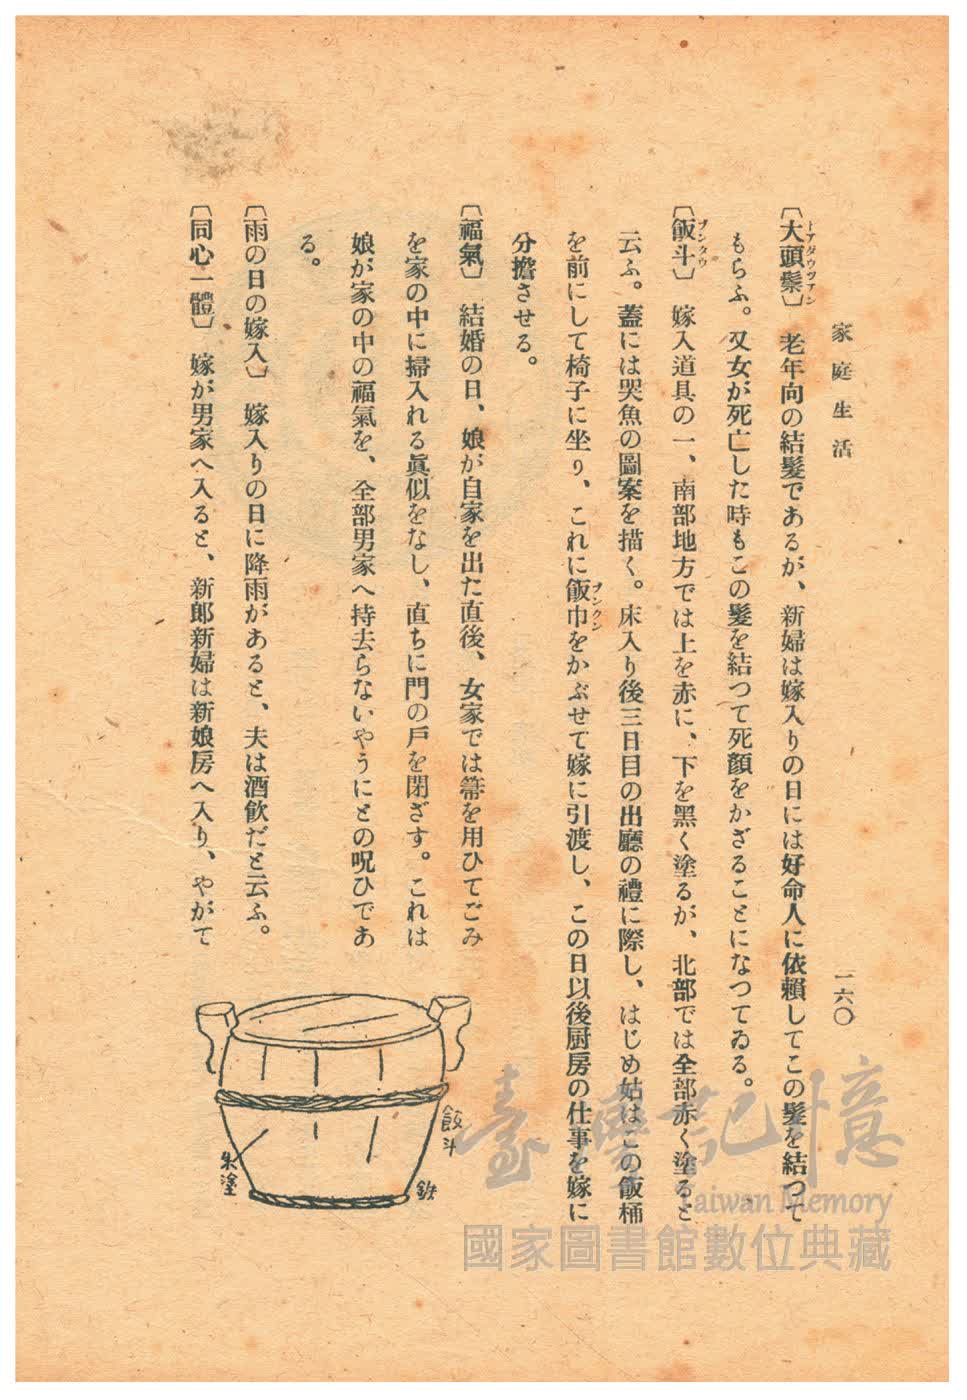 家庭生活
一六〇
〔大頭鬃〕 老年向の結髮であるが、新婦は嫁入りの日には好命人に依賴してこの髮を結つて
トアタウツァン
もらふ。又女が死亡した時もこの髮を結つて死顏をかざることになつてゐる。
〔飯斗〕 嫁入道具の一、南部地方では上を赤に、下を黑く塗るが、北部では全部赤く塗ると
プンタウ
云ふ。蓋には哭魚の圖案を描く。床入り後三日目の出廳の禮に際し、はじめ姑はこの飯桶
を前にして椅子に坐り、これに飯巾をかぶせて嫁に引渡し、この日以後厨房の仕事を嫁に
プンクン
分擔させる。
〔福氣〕 結婚の日、娘が自家を出た直後、女家では箒を用ひてごみ
を家の中に掃入れる眞似をなし、直ちに門の戶を閉ざす。これは
娘が家の中の福氣を、全部男家へ持去らないやうにとの呪ひであ
る。
〔雨の日の嫁入〕 嫁入りの日に降雨があると、夫は酒飮だと云ふ。
〔同心一體〕 嫁が男家へ入ると、新郞新婦は新娘房へ入り、やがて
飯斗
朱塗
鉄
臺灣記憶
Taiwan Memory
國家圖書館數位典藏